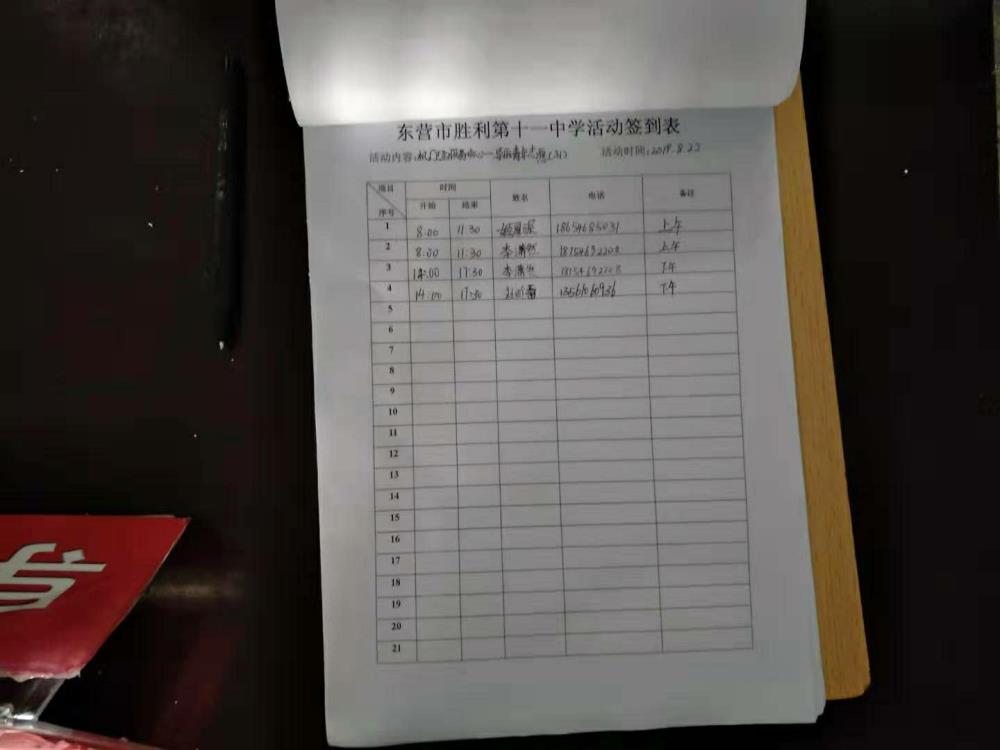 东营市胜利第十一中学活动签到表
活动内容: 活动时间:2019.8.22
项目 时间 姓名 电话 备注
序号 开始 结束
1 8:00 11:30 18654685031 上午
2 8:00 11:30 李潇然 18154692208 上午
3 14:00 17:30 李潇然 18154692208 下午
4 14:00 17:30 下午
5
6
7
8
9
10
11
12
13
14
15
16
17
18
19
20
21